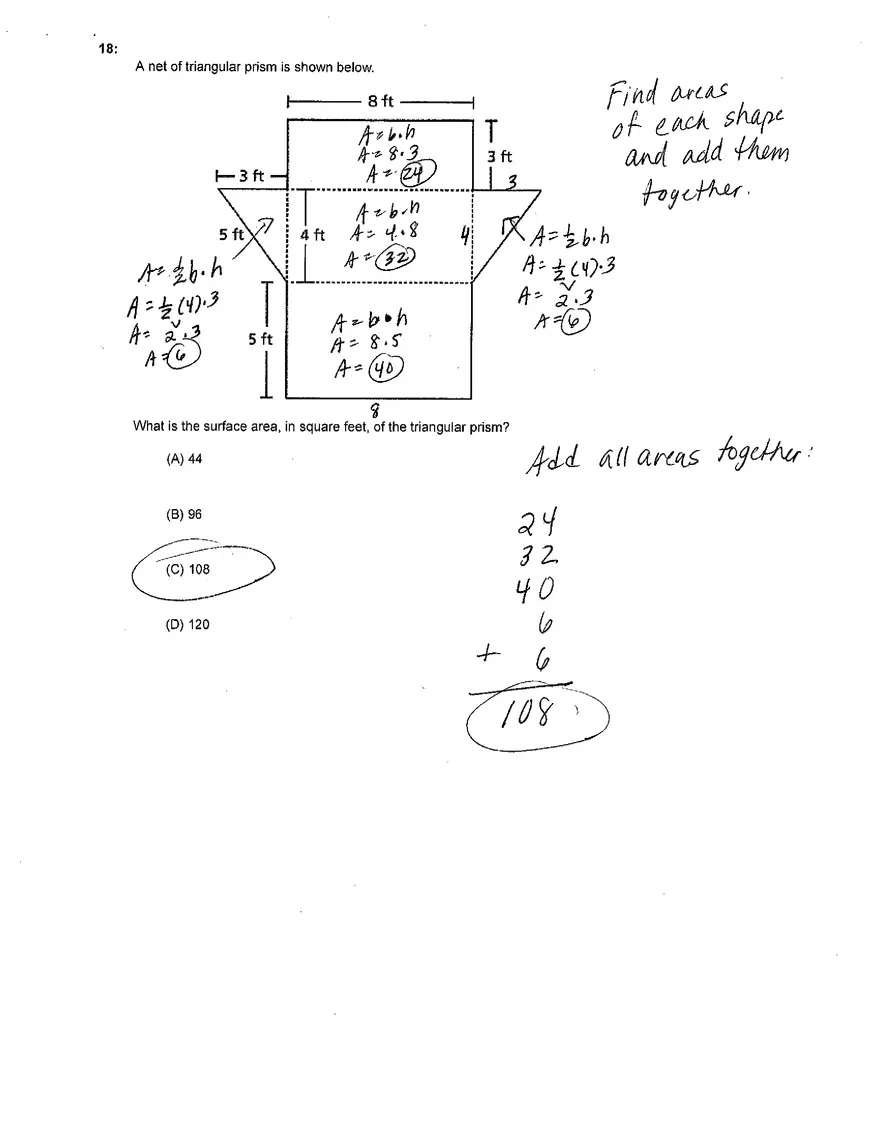 18:
A net of triangular prism is shown below.
Find areas
of each shape
and add them
together.
8 ft
A = b·h
A = 8·3
A = 24
3 ft
3 ft
3
A = b·h
A = 4·8
A = 32
5 ft
4 ft
4
A = ½ b·h
A = ½ (4)·3
A = 2·3
A = 6
A = ½ b·h
A = ½ (4)·3
A = 2·3
A = 6
5 ft
A = b•h
A = 8·5
A = 40
8
What is the surface area, in square feet, of the triangular prism?
(A) 44
(B) 96
(C) 108
(D) 120
Add all areas together:
24
32
40
6
+ 6
108